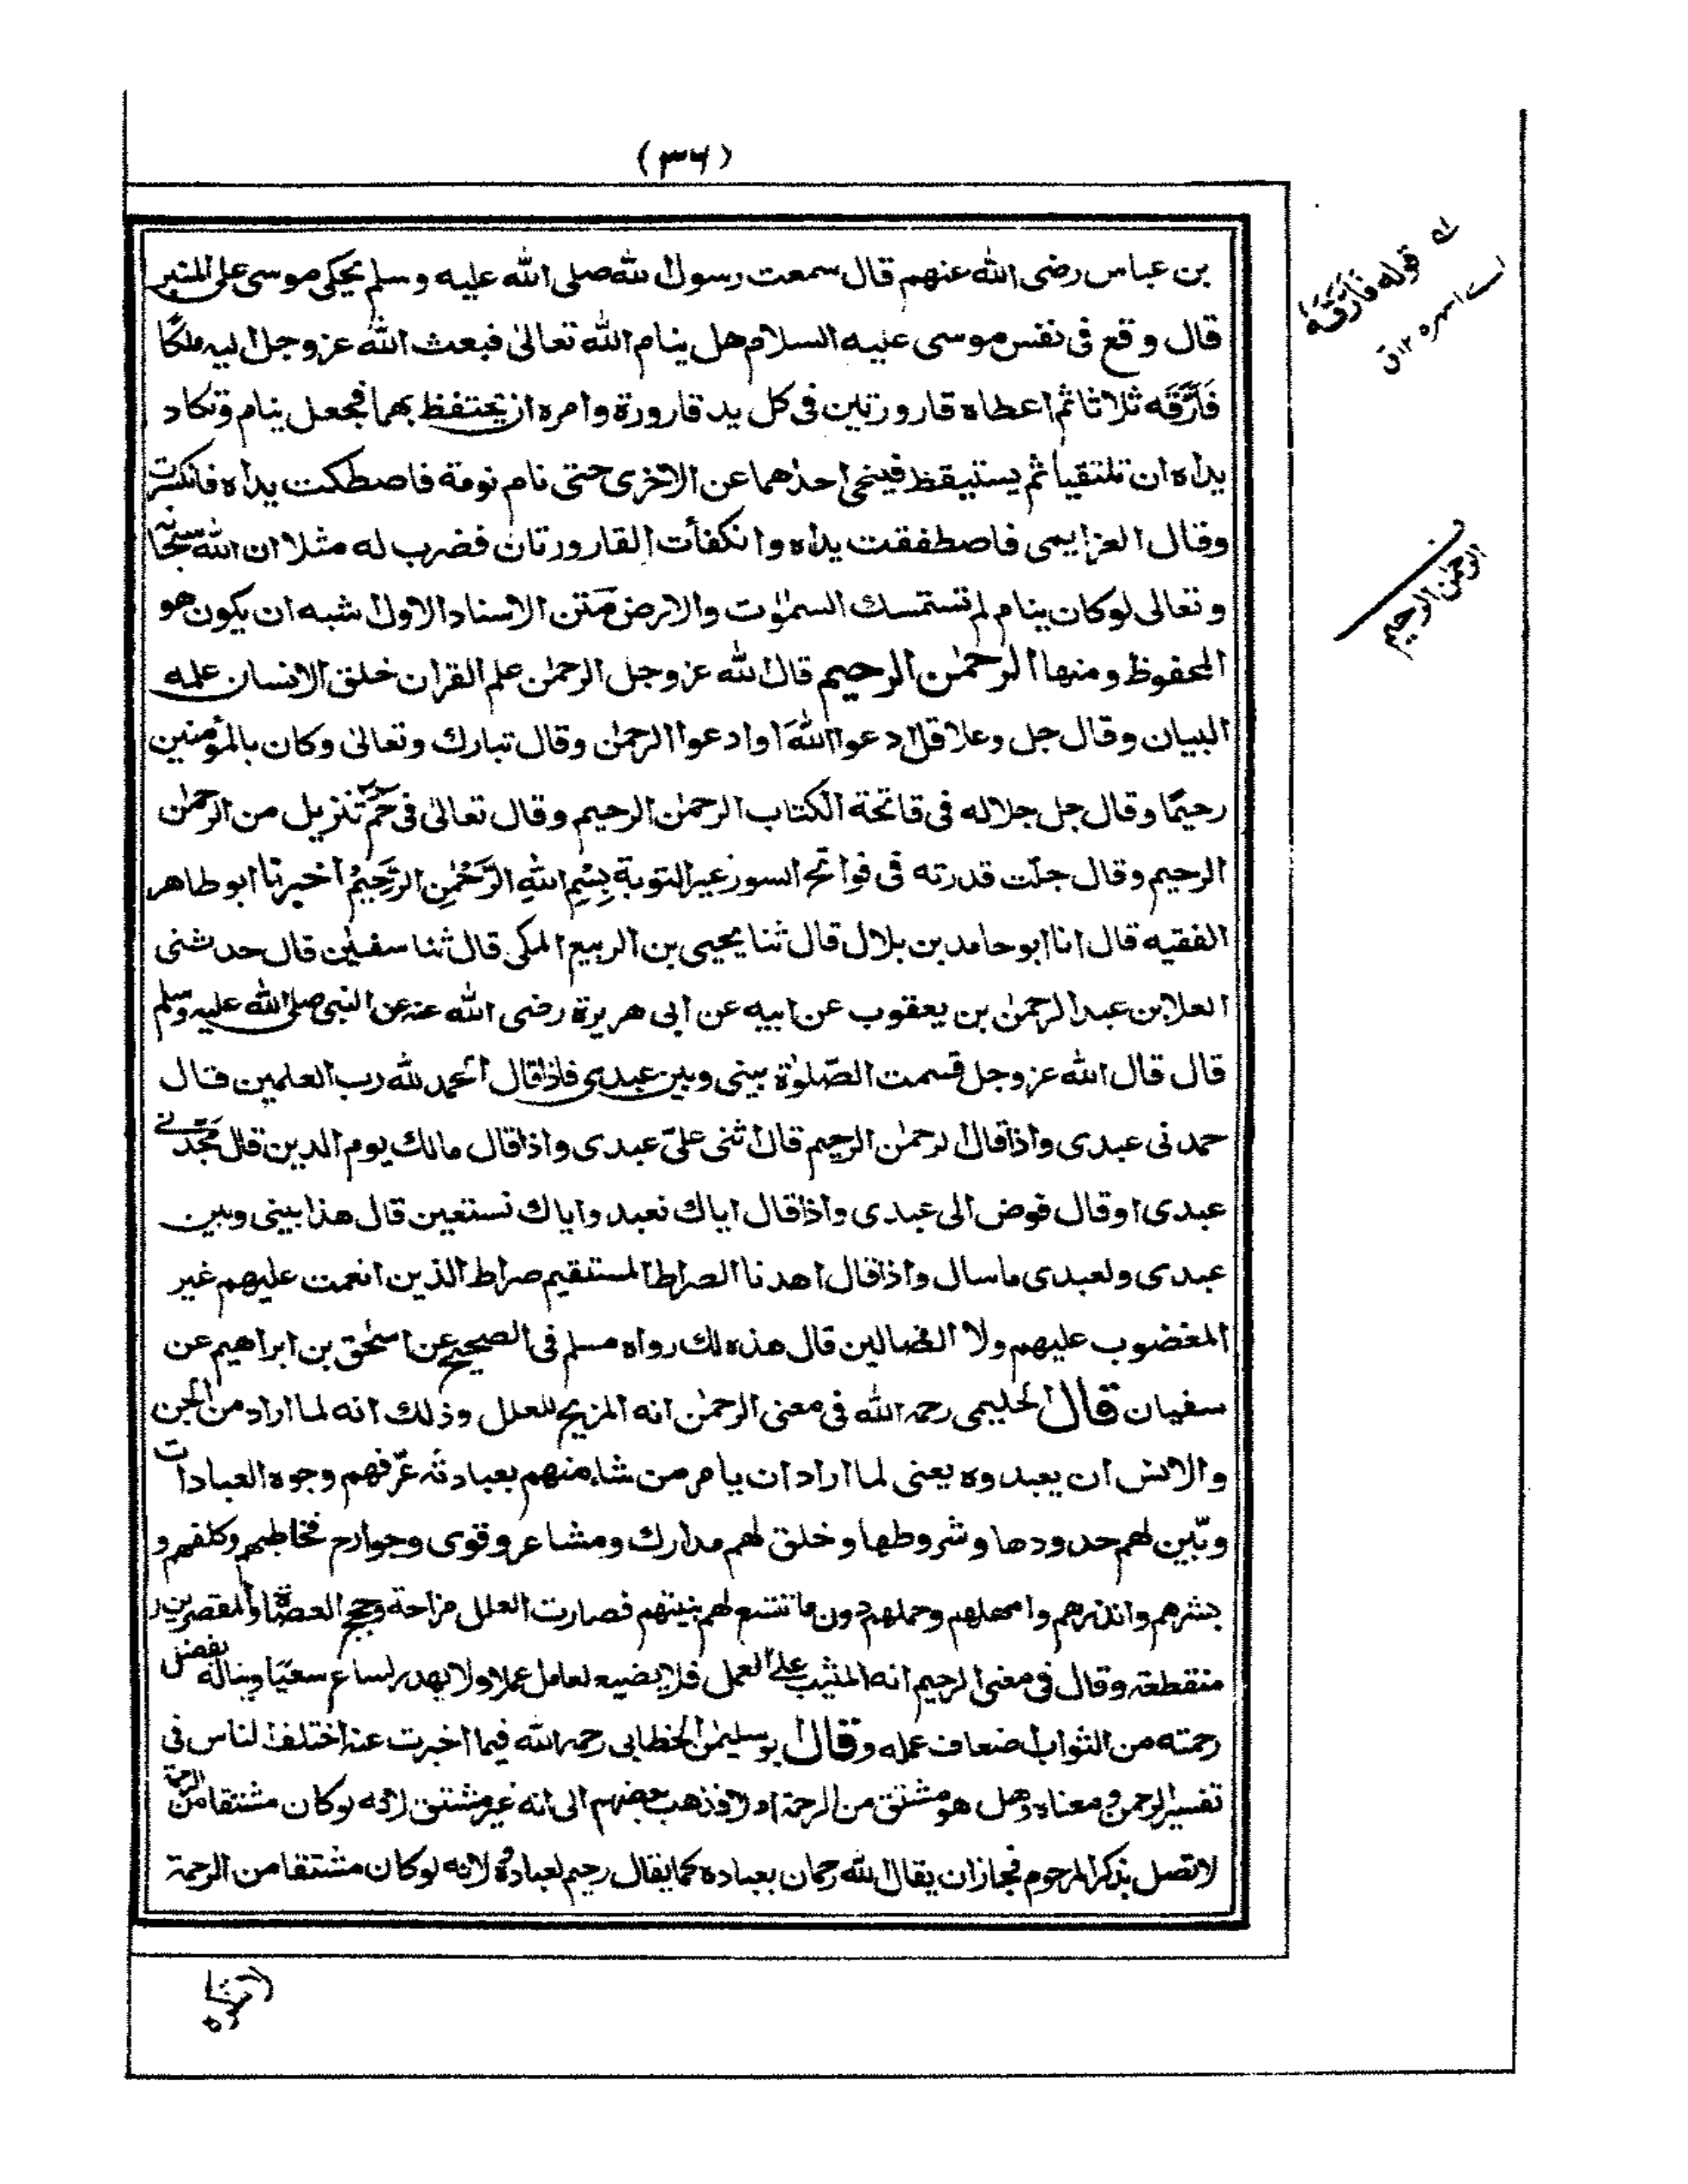 (٣٦)
بن عباس رضى الله عنهم قال سمعت رسول الله صلى الله عليه وسلم يحكى موسى على المنبر
قال وقع فى نفس موسى عليه السلام هل ينام الله تعالىٰ فبعث الله عزوجل اليه ملكًا
فَأَرَّقَه ثلاثا ثم اعطاه قارورتين فى كل يد قارورة وامره ان يحتفظ بهما فجعل ينام وتكاد
يداه ان تلتقيا ثم يستيقظ فينحى احدٰهما عن الاخرى حتى نام نومة فاصطكت يداه فانكسرت
وقال العزايمى فاصطفقت يداه وانكفأت القارورتان فضرب له مثلا ان الله سبحانه
وتعالى لوكان ينام لم تستمسك السمٰوٰت والارض مَتن الاسناد الاول اشبه ان يكون هو
المحفوظ ومنها الرحمٰن الرحيم قال الله عزوجل الرحمٰن علم القرأن خلق الانسان علمه
البيان وقال جل وعلا قل ادعوا اللهَ اوادعوا الرحمٰن وقال تبارك وتعالىٰ وكان بالمؤمنين
رحيمًا وقال جل جلاله فى فاتحة الكتاب الرحمٰن الرحيم وقال تعالىٰ فى حٰمٓ تنزيل من الرحمٰن
الرحيم وقال جلّت قدرته فى فواتح السور غير التوبة بِسْمِ اللهِ الرَّحْمٰنِ الرَّحِيْمِ اخبرنا ابوطاهر
الفقيه قال انا ابوحامد بن بلال قال ثنا يحيى بن الربيع المكى قال ثنا سفيٰن قال حدثنى
العلا بن عبد الرحمٰن بن يعقوب عن ابيه عن ابى هريرة رضى الله عنه عن النبى صلى الله عليه وسلم
قال قال الله عزوجل قسمت الصّلوٰة بينى وبين عبدى فاذا قال الحمد لله رب العلمين قال
حمدنى عبدى واذا قال الرحمٰن الرحيم قال اثنى علىّ عبدى واذا قال مالك يوم الدين قال مَجّدنى
عبدى اوقال فوض الى عبدى واذا قال اياك نعبد واياك نستعين قال هذا بينى وبين
عبدى ولعبدى ما سال واذا قال اهدنا الصراط المستقيم صراط الذين انعمت عليهم غير
المغضوب عليهم ولا الضالين قال هذه لك رواه مسلم فى الصحيح عن اسحٰق بن ابراهيم عن
سفيان قال الحليمى رحمه الله فى معنى الرحمٰن انه المزيح للعلل وذلك انه لما اراد من الجن
والانس ان يعبدوه يعنى لما اراد ان يامر من شاء منهم بعبادته عرّفهم وجوه العبادات
وبّين لهم حدودها وشروطها وخلق لهم مدارك ومشاعر وقوى وجوارح فخاطبهم وكلفهم و
بشرهم وانذرهم وامهلهم وحملهم دون ما تتسع لهم بنيتهم فصارت العلل مزاحة وحجج العصاة والمقصرين
منقطعة وقال فى معنى الرحيم انه المثيب على العمل فلا يضيع لعامل عملا ولا يهدر لساع سعيًا وينالُه بفضل
رحمته من الثواب اضعاف عمله وقال ابوسليمٰن الخطابى رحمه الله فيما اخبرت عنه اختلف الناس فى
تفسير الرحمن ومعناه وهل هو مشتق من الرحمة ام لا فذهب بعضهم الى انه غير مشتق لانه لوكان مشتقا من الرحمة
لاتصل بذكر المرحوم فجاز ان يقال الله رحمان بعباده كما يقال رحيم بعباده لانه لوكان مشتقا من الرحمة
له قوله فأَرَّقَهُ
اے اسهره ١٢ ق
الرحمٰن الرحيم